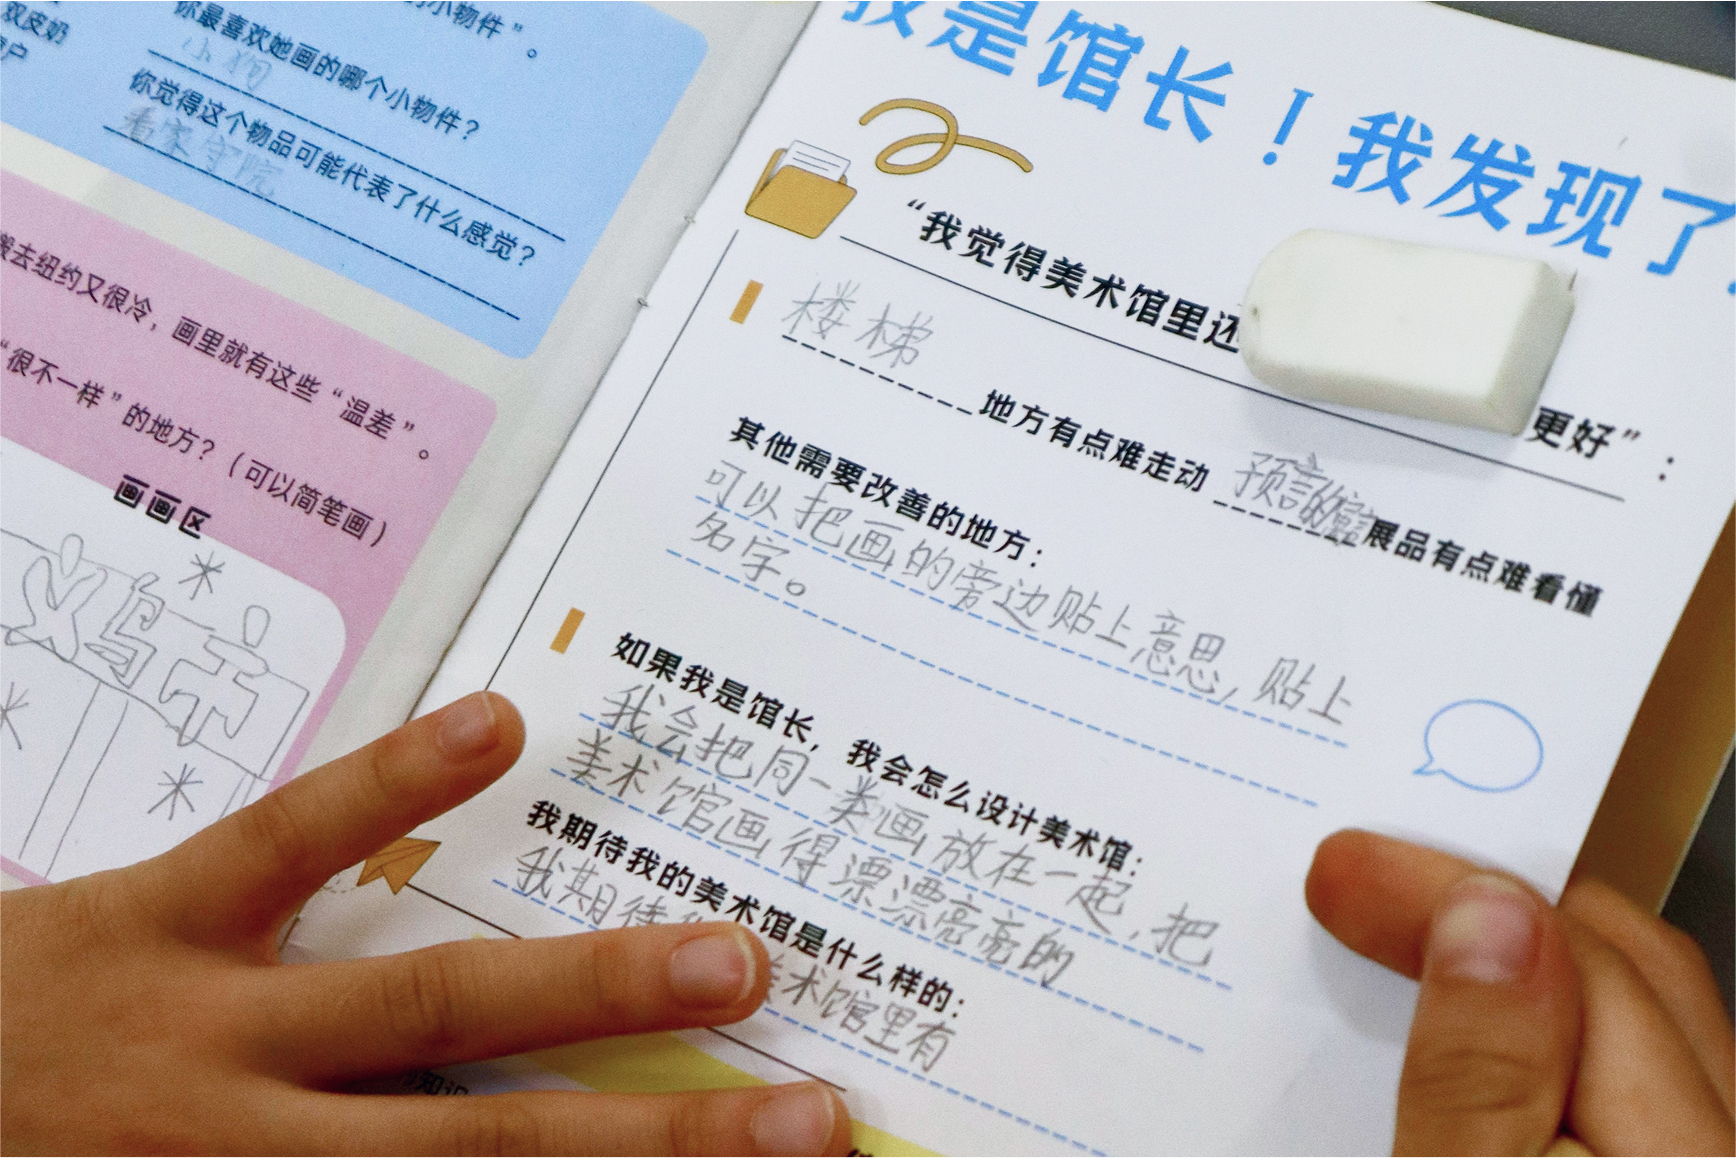 双皮奶
户
小物件”。
你最喜欢她画的哪个小物件？
小狗
你觉得这个物品可能代表了什么感觉？
看家守院
搬去纽约又很冷，画里就有这些“温差”。
“很不一样”的地方？（可以简笔画）
画画区
义乌市
我是馆长！我发现了
“我觉得美术馆里还
更好”：
楼梯 地方有点难走动 预言的 展品有点难看懂
其他需要改善的地方：
可以把画的旁边贴上意思，贴上
名字。
如果我是馆长，我会怎么设计美术馆：
我会把同一类画放在一起，把
美术馆画得漂漂亮亮的
我期待我的美术馆是什么样的：
我期待 美术馆里有
知识